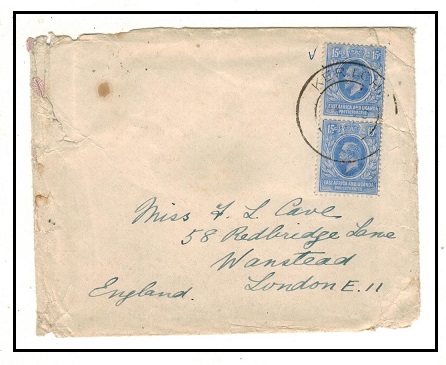 15 15
EAST AFRICA AND UGANDA
PROTECTORATES
KERICHO
15
EAST AFRICA AND UGANDA
PROTECTORATES
Miss F. L. Cave
58 Redbridge Lane
Wanstead
London E. 11
England.